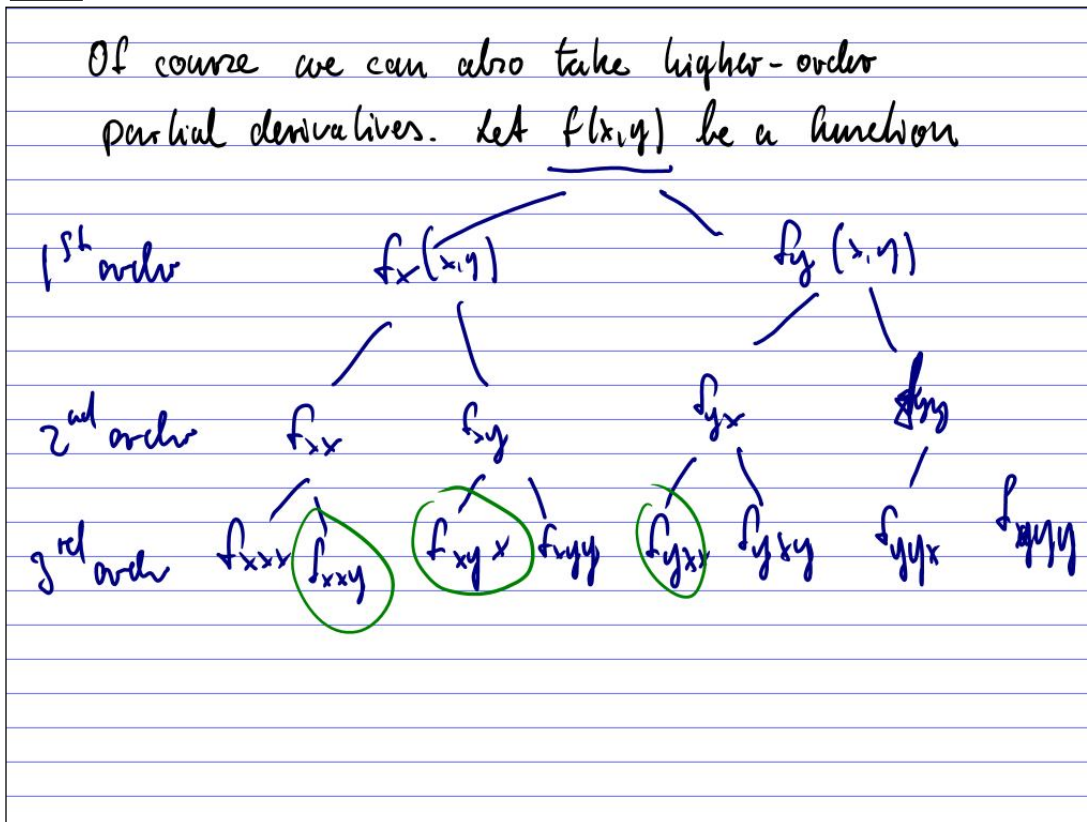 Of course we can also take higher-order
partial derivatives. Let f(x,y) be a function
1st order f_x(x,y) f_y(x,y)
2nd order f_xx f_xy f_yx f_yy
3rd order f_xxx f_xxy f_xyx f_xyy f_yxx f_yxy f_yyx f_yyy